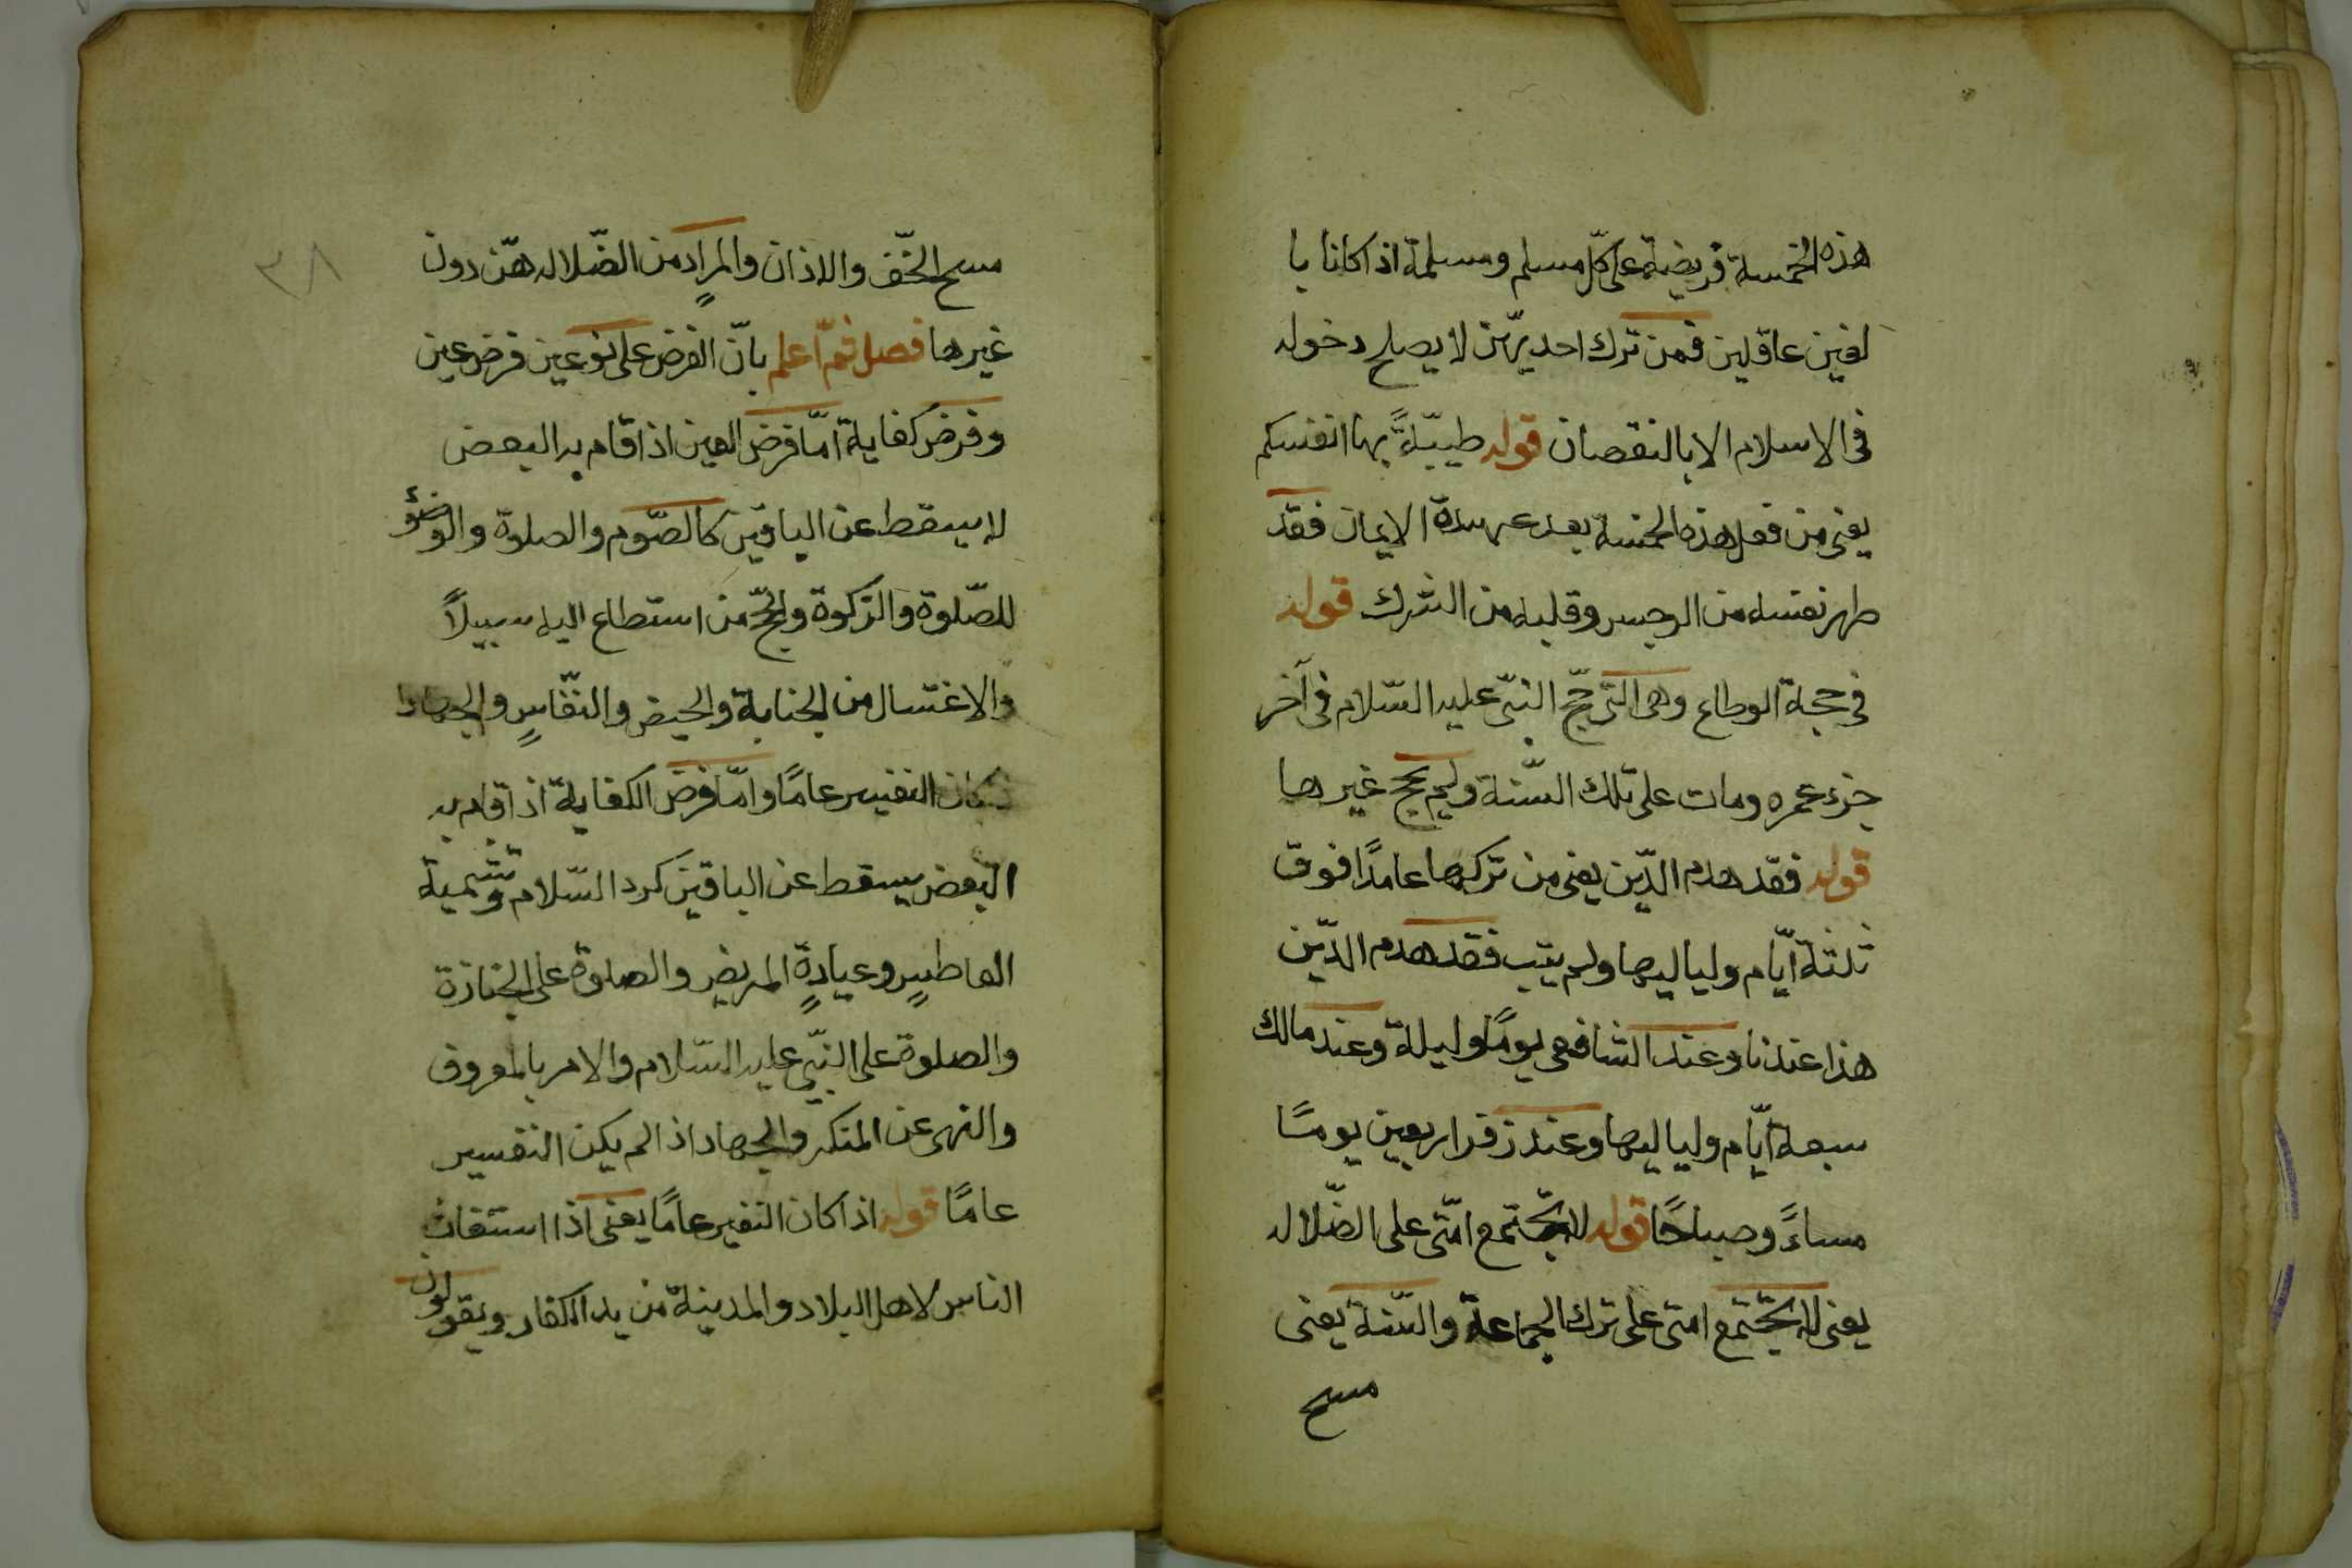 هذه الخمسة فريضة على كلّ مسلم ومسلمة اذا كانا با
لغين عاقلين فمن ترك احديهّن لا يصلح دخوله
فى الاسلام الا بالنقصان قوله طيبّةً بها انفسكم
يعنى من فعل هذه الخمسة بعد عهدة الايمان فقد
طهر نفسه من الرجس وقلبه من الشرك قوله
فى حجة الوداع وهى التى حجّ النبىّ عليه السّلام فى آخر
جزء عمره ومات على تلك السّنة ولم يحج غيرها
قوله فقد هدم الدّين يعنى من تركها عامدًا فوق
ثلثة ايّام ولياليها ولم يتب فقد هدم الدّين
هذا عندنا وعند الشافعى يومًا وليلة وعند مالك
سبعة ايّام ولياليها وعند زفر اربعين يومًا
مساءً وصباحًا قوله لا يجّتمع امّتى على الضّلاله
يعنى لا يجّتمع امتى على ترك الجماعة والسّنة يعنى
مسح
٣٨
مسح الخّف والاذان والمرادِ من الضّلاله هّن دون
غيرها فصل ثمّ اعلم بانّ الفرض على نوعين فرض عين
وفرض كفاية امّا فرض العين اذا قام به البعض
لا يسقط عن الباقين كالصّوم والصلوة والوضؤ
للصّلوة والزكوة والحجّ من استطاع اليه سبيلاً
والاغتسال من الجنابة والحيض والنفّاسِ والجهاد
كان النفير عامًا وامّا فرض الكفاية اذا قام به
البعض يسقط عن الباقين كرد السّلام وتشمية
العاطسٍ وعيادةٍ المريض والصلوة على الجنازة
والصلوة على النبّى عليه السّلام والامر بالمعروف
والنهى عن المنكر والجهاد اذا لم يكن النفير
عامًا قوله اذا كان النفير عامًا يعنى اذا استغاث
الناس لاهل البلاد والمدينة من يد الكفار ويقولون